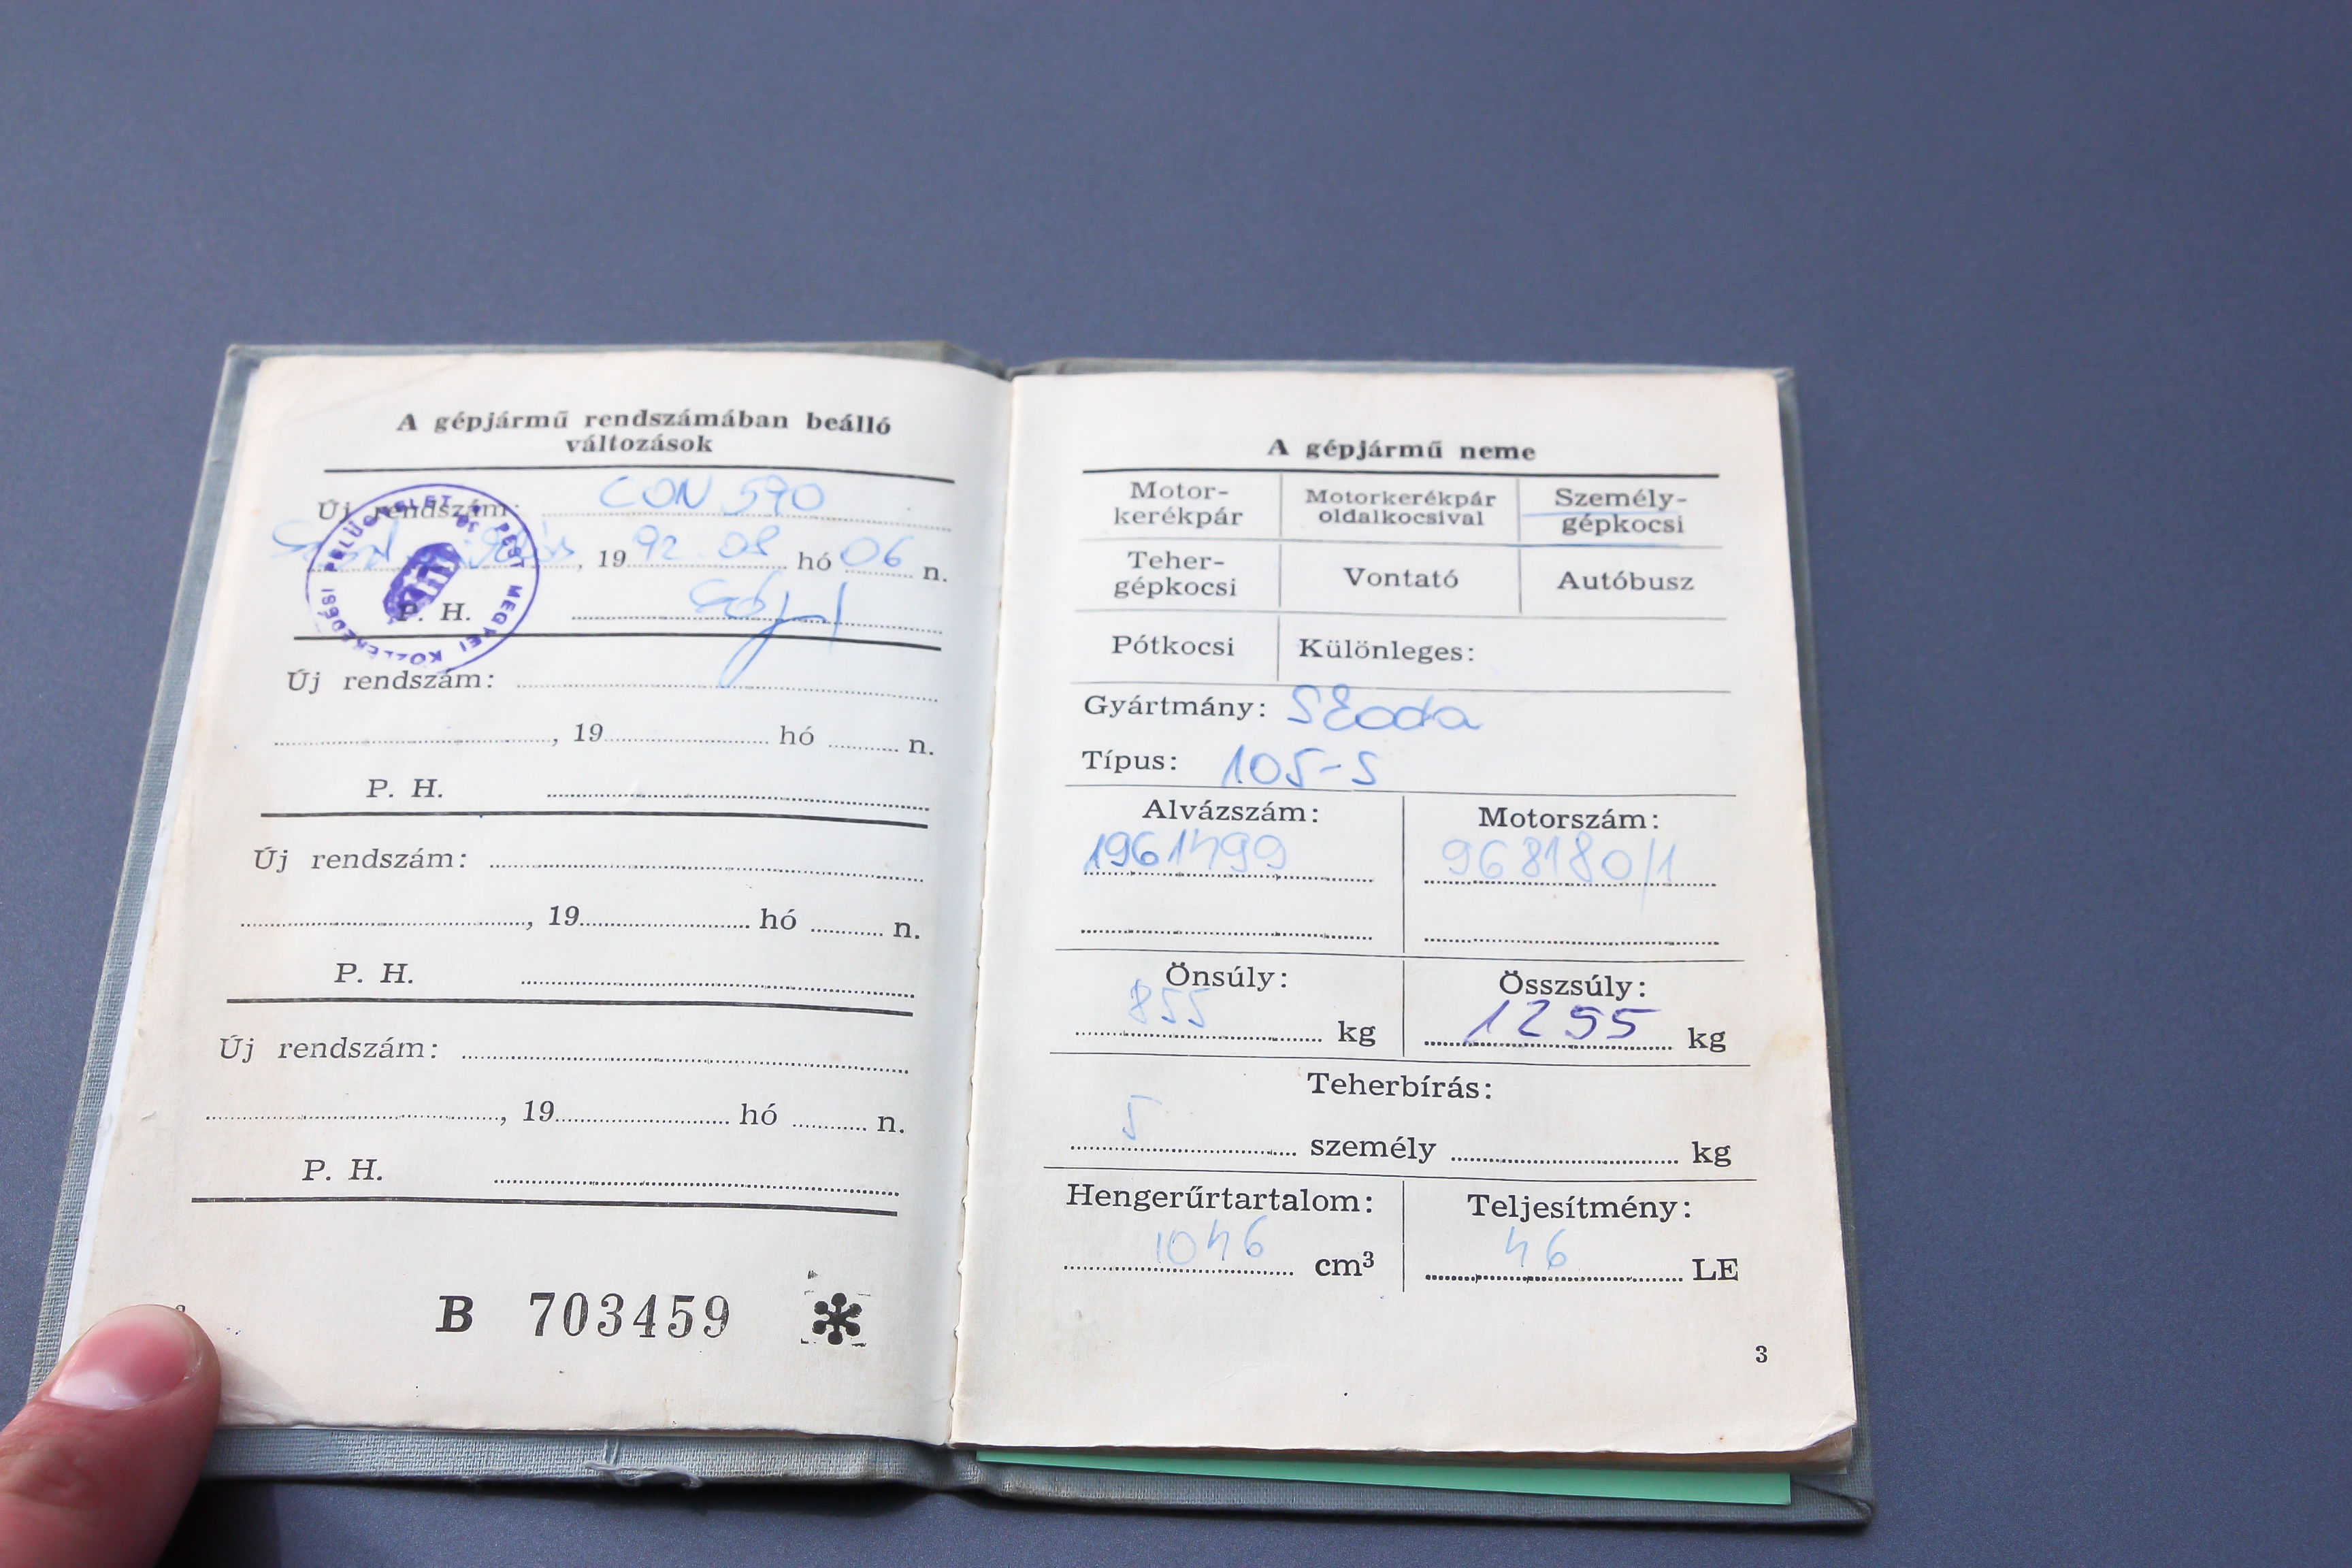 A gépjármű rendszámában beálló
változások
Új rendszám: CON 590
, 1992.08 hó 06 n.
P. H.
PEST MEGYEI KÖZLEKEDÉSI FELÜGYELET
Új rendszám:
, 19 hó n.
P. H.
Új rendszám:
, 19 hó n.
P. H.
Új rendszám:
, 19 hó n.
P. H.
B 703459 *
A gépjármű neme
Motor-
kerékpár
Motorkerékpár
oldalkocsival
Személy-
gépkocsi
Teher-
gépkocsi
Vontató
Autóbusz
Pótkocsi
Különleges:
Gyártmány: Skoda
Típus: 105-S
Alvázszám:
1961499
Motorszám:
968180/1
Önsúly:
855 kg
Összsúly:
1255 kg
Teherbírás:
5 személy kg
Hengerűrtartalom:
1046 cm³
Teljesítmény:
46 LE
3